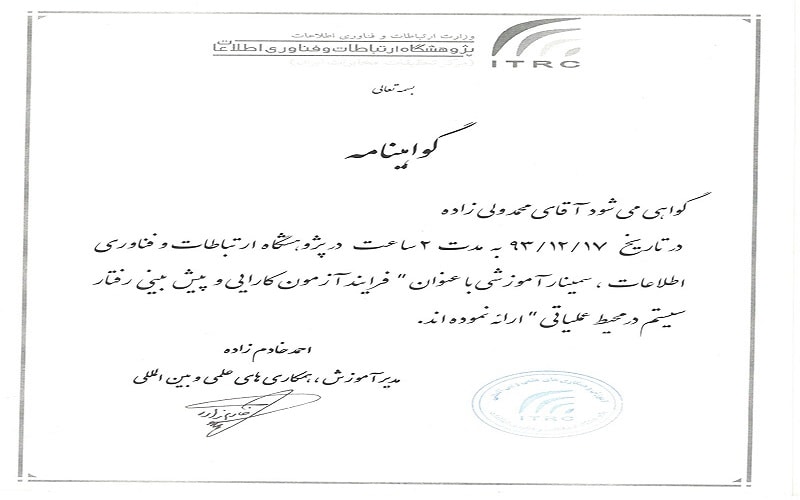 وزارت ارتباطات و فناوری اطلاعات
پژوهشگاه ارتباطات و فناوری اطلاعات
(مرکز تحقیقات مخابرات ایران)
ITRC
بسمه تعالی
گواهینامه
گواهی می شود آقای محمد ولی زاده
در تاریخ ۹۳/۱۲/۱۷ به مدت ۲ ساعت در پژوهشگاه ارتباطات و فناوری
اطلاعات ، سمینار آموزشی با عنوان " فرایند آزمون کارایی و پیش بینی رفتار
سیستم در محیط عملیاتی " ارائه نموده اند.
احمد خادم زاده
مدیر آموزش ، همکاری های علمی و بین المللی
خادم زاده
ITRC